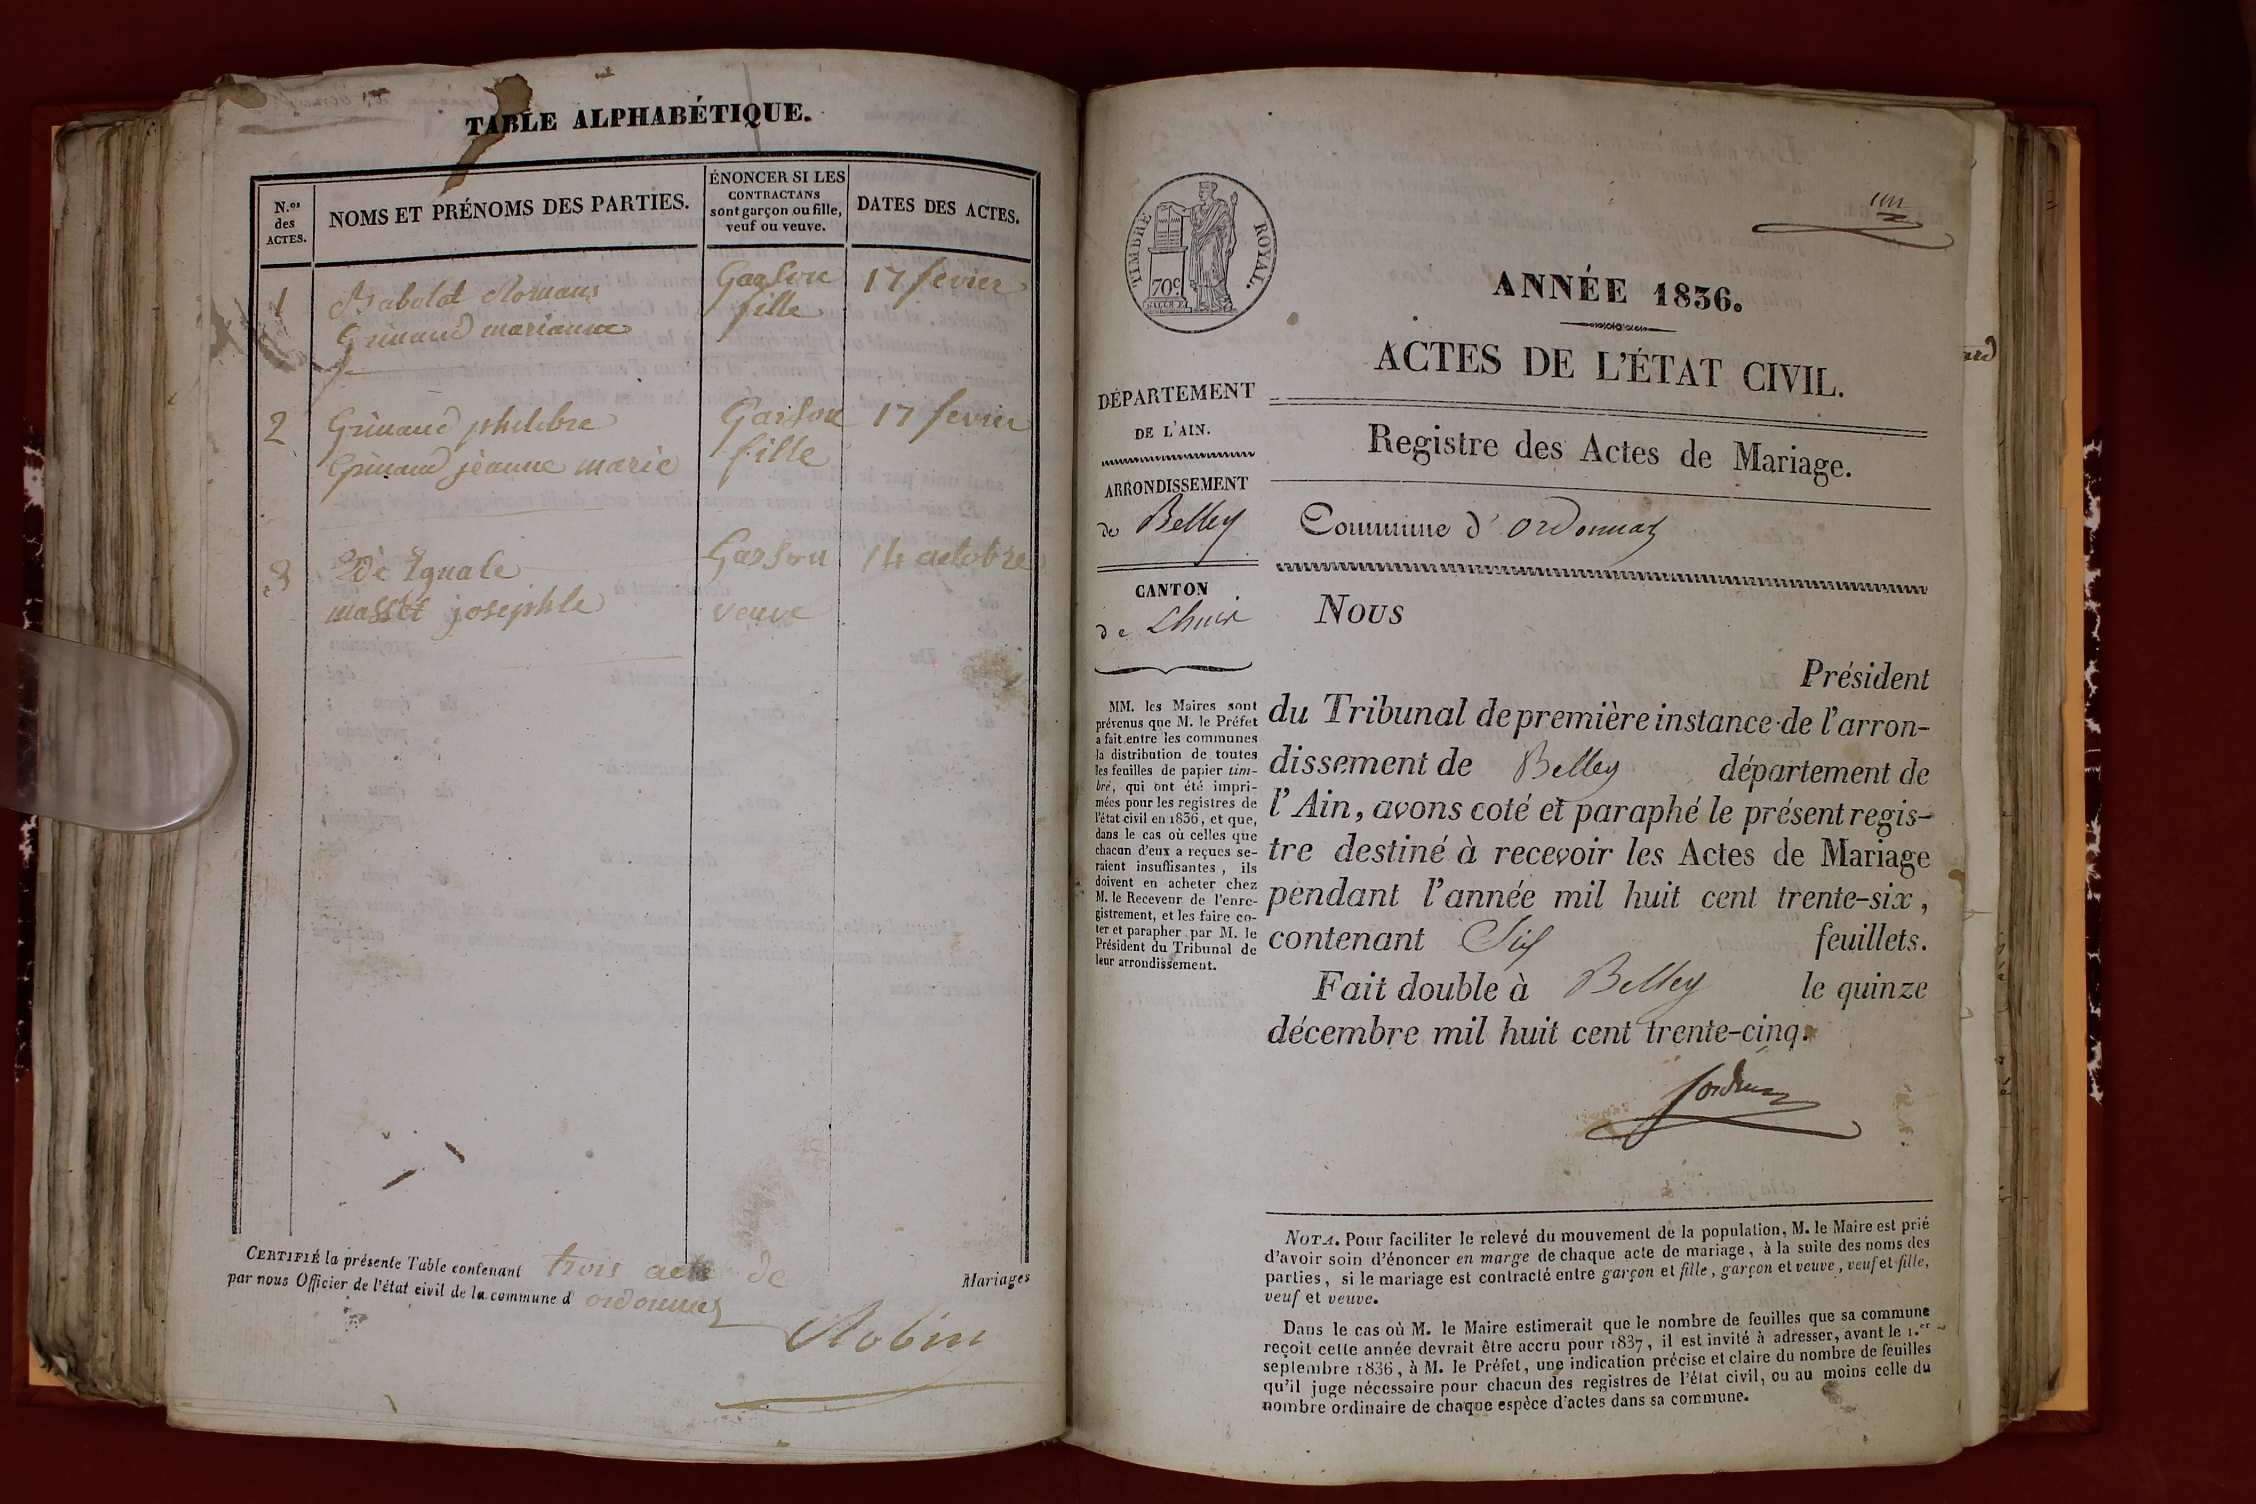 TABLE ALPHABÉTIQUE.
N.os des ACTES.
NOMS ET PRÉNOMS DES PARTIES.
ÉNONCER SI LES
CONTRACTANS
sont garçon ou fille,
veuf ou veuve.
DATES DES ACTES.
1 Babolat Romans Garson 17 fevier
Grinand marianne fille
2 Grinand philibre Garson 17 fevrier
Grinand jeanne marie fille
3 Garson 14 actobre
masset josephte veuve
CERTIFIÉ la présente Table contenant trois acte de Mariages
par nous Officier de l'état civil de la commune d ordonnaz
Robin
un
TIMBRE ROYAL.
70c.
ANNÉE 1836.
ACTES DE L'ÉTAT CIVIL.
DÉPARTEMENT
DE L'AIN.
ARRONDISSEMENT
de Belley
CANTON
de Lhuis
MM. les Maires sont
prévenus que M. le Préfet
a fait entre les communes
la distribution de toutes
les feuilles de papier tim-
bré, qui ont été impri-
mées pour les registres de
l'état civil en 1836, et que,
dans le cas où celles que
chacun d'eux a reçues se-
raient insuffisantes, ils
doivent en acheter chez
M. le Receveur de l'enre-
gistrement, et les faire co-
ter et parapher par M. le
Président du Tribunal de
leur arrondissement.
Registre des Actes de Mariage.
Commune d'ordonnaz
Nous
Président
du Tribunal de première instance de l'arron-
dissement de Belley département de
l'Ain, avons coté et paraphé le présent regis-
tre destiné à recevoir les Actes de Mariage
pendant l'année mil huit cent trente-six,
contenant Six feuillets.
Fait double à Belley le quinze
décembre mil huit cent trente-cinq.
NOTA. Pour faciliter le relevé du mouvement de la population, M. le Maire est prié
d'avoir soin d'énoncer en marge de chaque acte de mariage, à la suite des noms des
parties, si le mariage est contracté entre garçon et fille, garçon et veuve, veuf et fille,
veuf et veuve.
Dans le cas où M. le Maire estimerait que le nombre de feuilles que sa commune
reçoit cette année devrait être accru pour 1837, il est invité à adresser, avant le 1.er
septembre 1836, à M. le Préfet, une indication précise et claire du nombre de feuilles
qu'il juge nécessaire pour chacun des registres de l'état civil, ou au moins celle du
nombre ordinaire de chaque espèce d'actes dans sa commune.